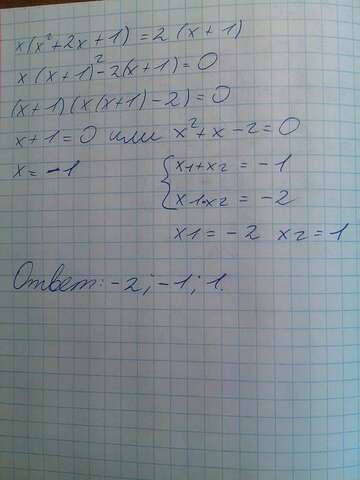 x(x²+2x+1)=2(x+1)
x(x+1)²-2(x+1)=0
(x+1)(x(x+1)-2)=0
x+1=0 или x²+x-2=0
x=-1 { x1+x2 = -1
x1·x2 = -2
x1=-2 x2=1
Ответ: -2; -1; 1.